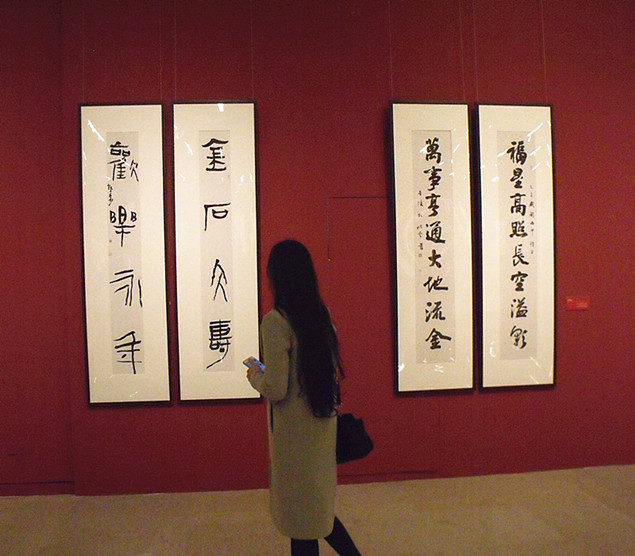 福星高照長空溢彩
萬事亨通大地流金
金石壽
歡樂永年